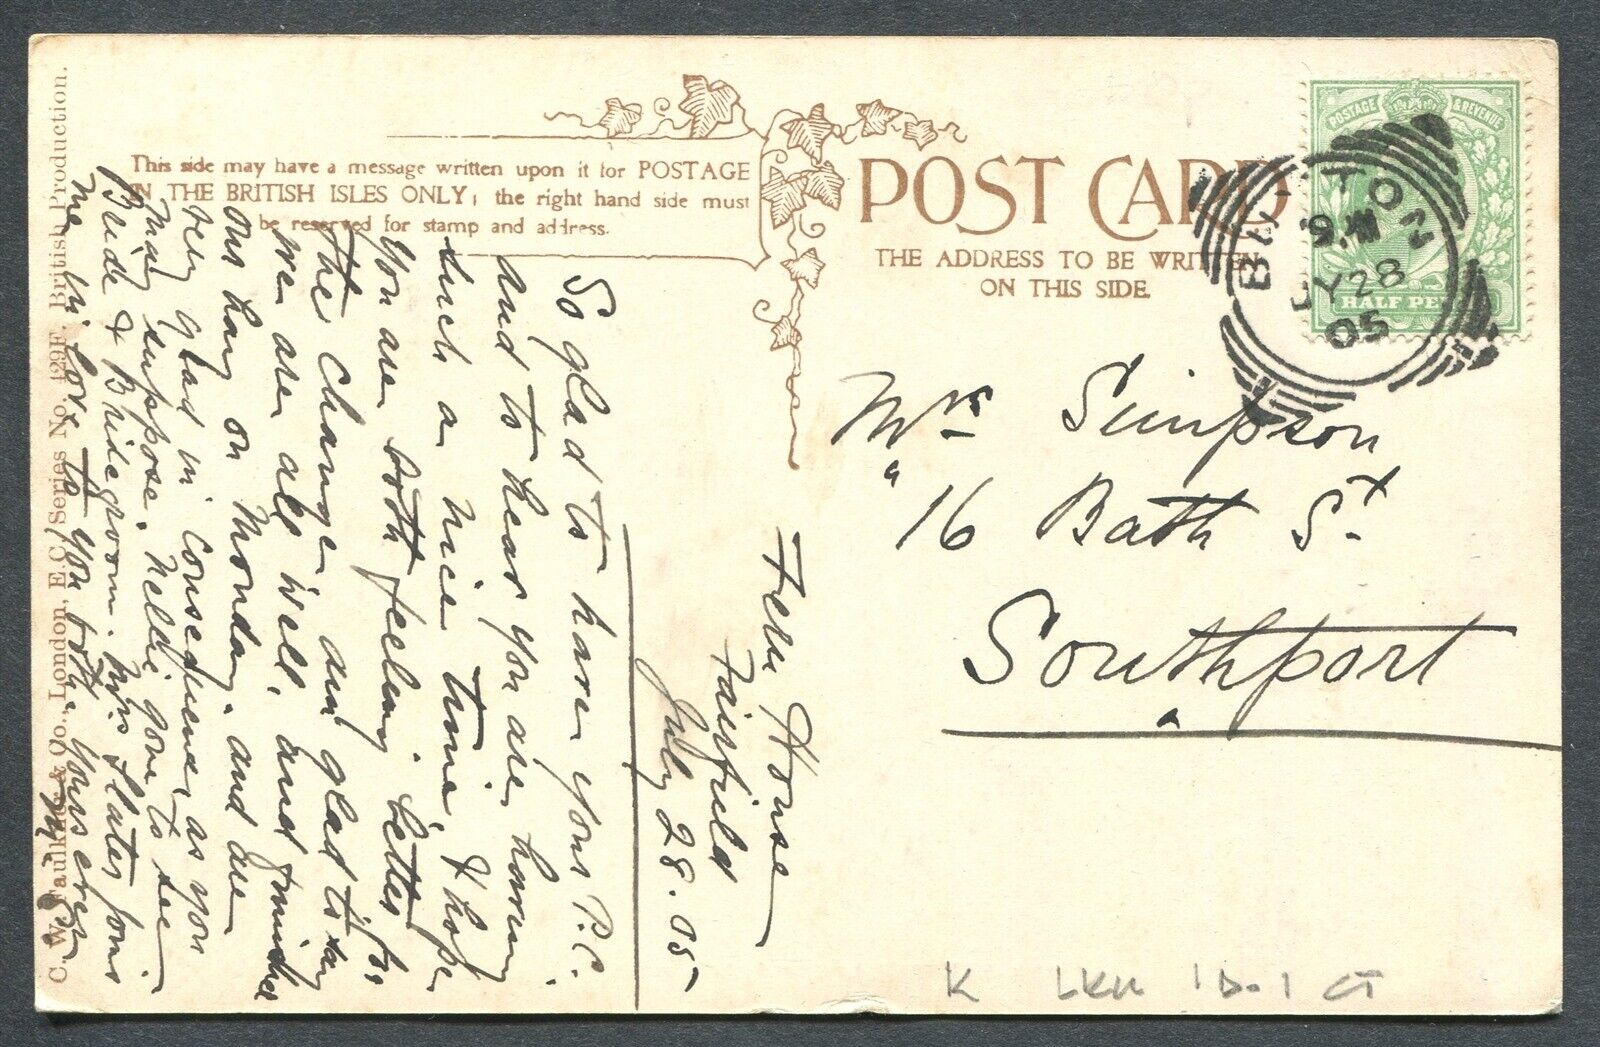 This side may have a message written upon it for POSTAGE
IN THE BRITISH ISLES ONLY; the right hand side must
be reserved for stamp and address.
POST CARD
THE ADDRESS TO BE WRITTEN
ON THIS SIDE.
POSTAGE & REVENUE
HALF PENNY
BUXTON
9. AM
JY 28
05
Mrs Simpson
16 Bath St.
Southport
Fern House
Fairfield
July 28. 05
So glad to have your P.C.
and to hear you are having
such a nice time, & hope
you are both feeling better for
the change, am glad to say
we are all well, and finished
our hay on Monday. and are
very glad in consequence, as you
may suppose. Nellie gone to see
Bride & Bridegroom. Mrs Slater joins
me in love to you both. Yours ever
C. W. Faulkner & Co., London. E.C./Series No. 429F. British Production.
K